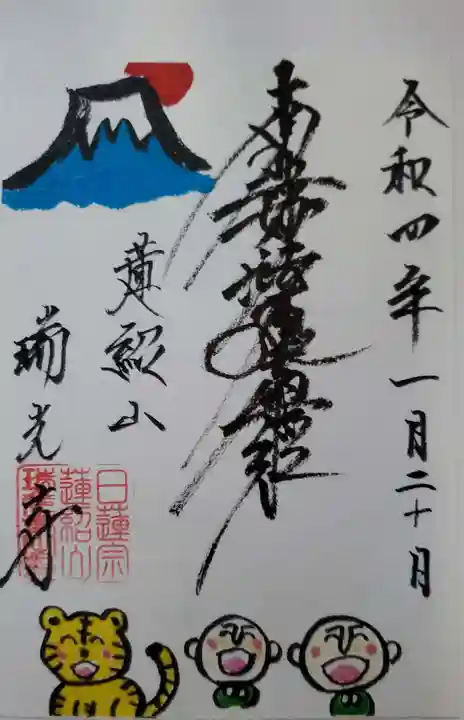 令和四年一月二十日
南無妙法蓮華経
蓮紹山
瑞光寺
日蓮宗
蓮紹山